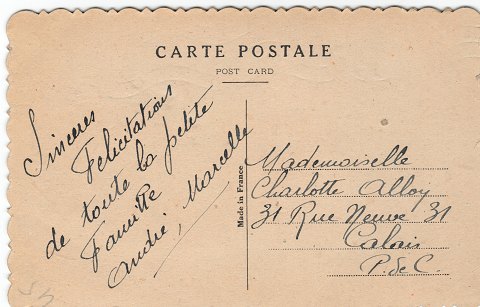 CARTE POSTALE
POST CARD
Sinceres
Felicitations
de toute la petite
Famille
André, Marcelle
Made in France
Mademoiselle
Charlotte Alloy
31 Rue Neuve 31
Calais
P. de C.